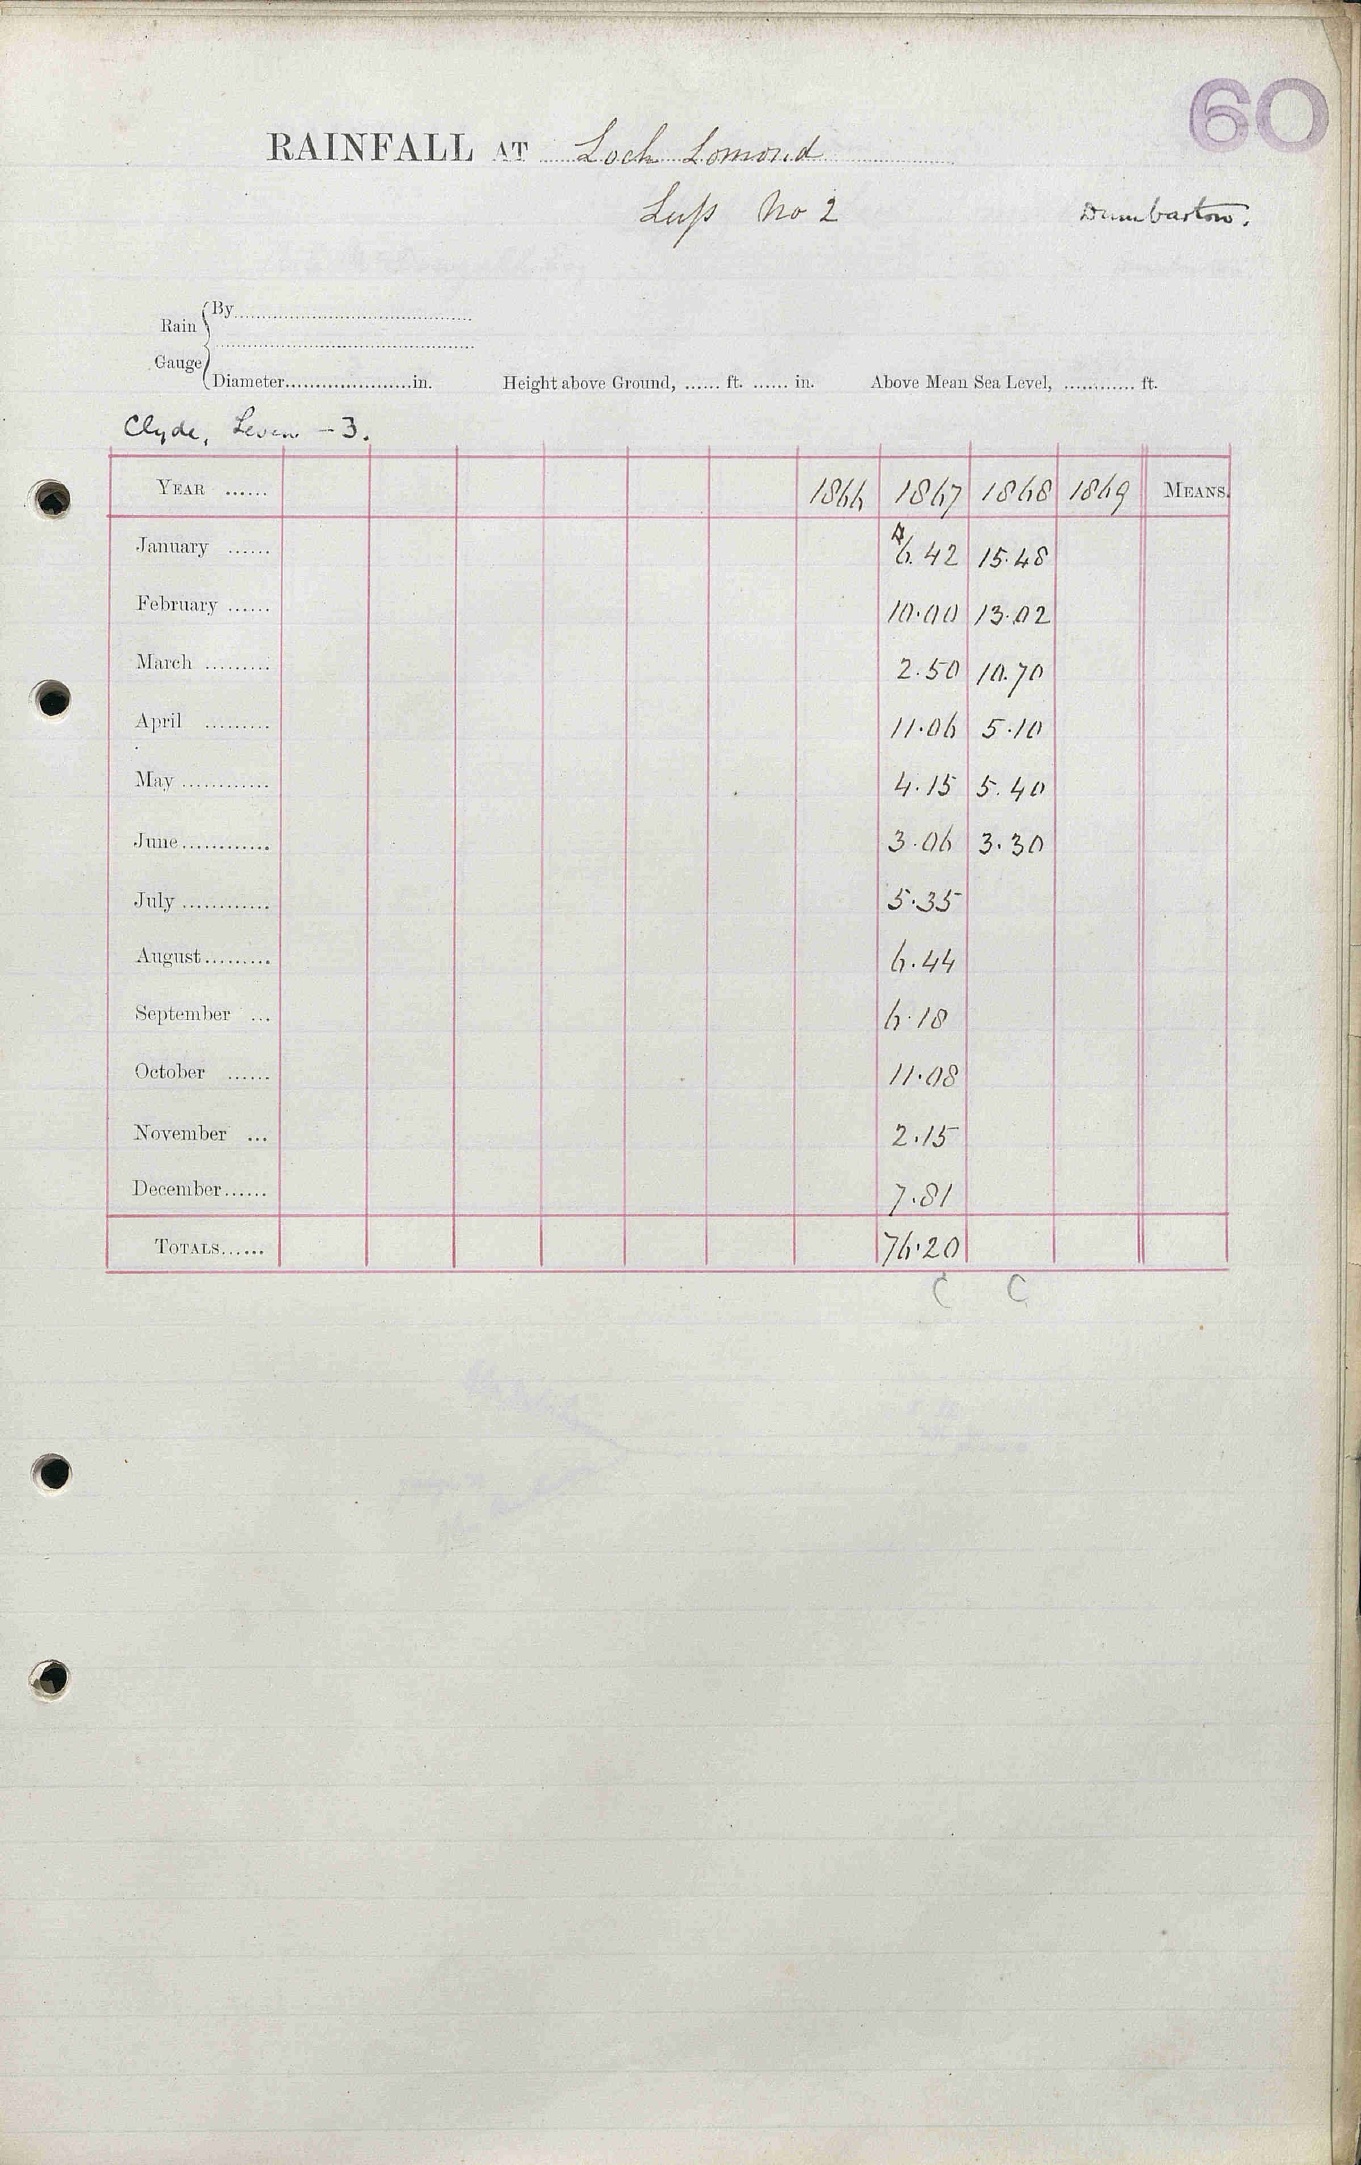 60
RAINFALL AT Loch Lomond
Luss No 2 Dumbarton.
Rain Gauge { By
Diameter in. Height above Ground, ft. in. Above Mean Sea Level, ft.
Clyde, Leven - 3.
YEAR 1866 1867 1868 1869 MEANS.
January 6.42 15.48
February 10.00 13.02
March 2.50 10.70
April 11.06 5.10
May 4.15 5.40
June 3.06 3.30
July 5.35
August 6.44
September 6.18
October 11.08
November 2.15
December 7.81
TOTALS 76.20
C C